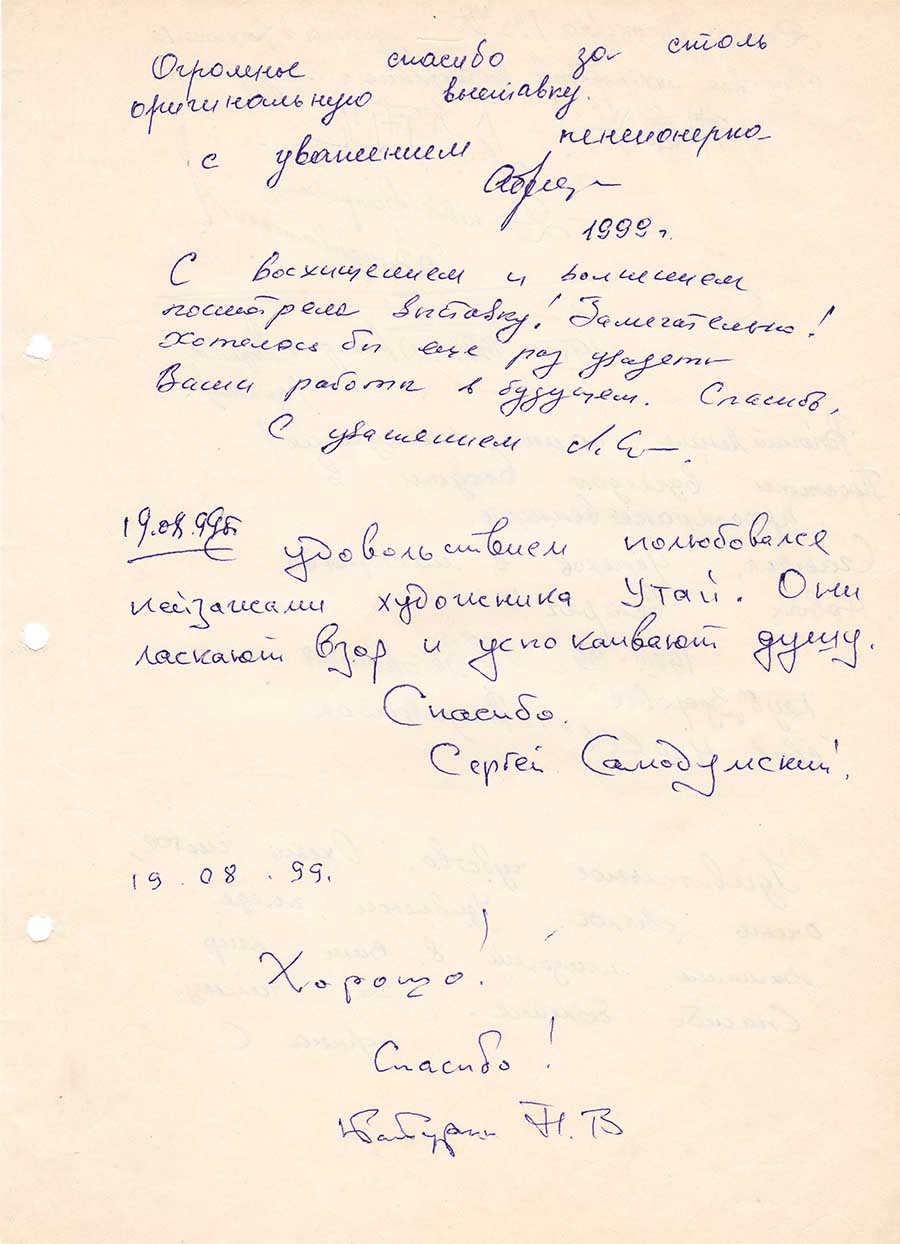 Огромное спасибо за столь
оригинальную выставку.
с уважением пенсионерка
1999 г.
С восхищением и волнением
посмотрела выставку! Замечательно!
Хотелось бы еще раз увидеть
Ваши работы в будущем. Спасибо,
С уважением
19.08.99г. С удовольствием полюбовался
пейзажами художника Утай. Они
ласкают взор и успокаивают душу.
Спасибо.
Сергей Самодумский.
19.08.99.
Хорошо!
Спасибо!
Н. В